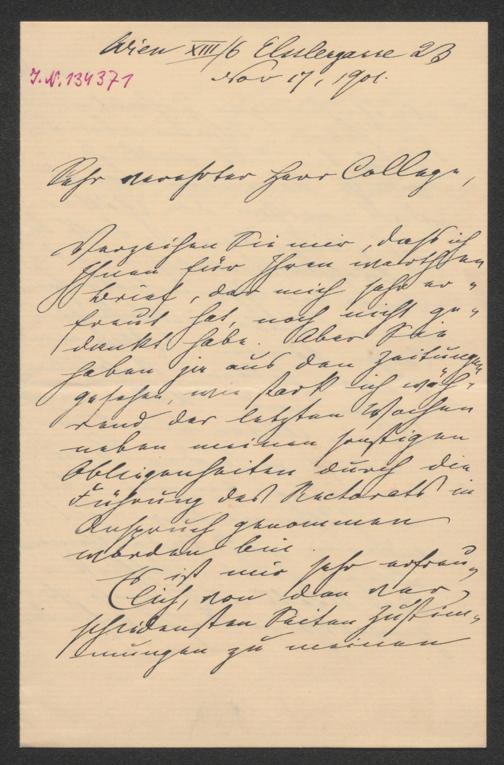 Wien XIII/6 Elslergasse 23
Nov 17, 1901.
J.N. 134371
Sehr verehrter Herr College,
Verzeihen Sie mir, daß ich
Ihnen für Ihren werthen
Brief, der mich sehr er-
freut hat, noch nicht ge-
dankt habe. Aber Sie
haben ja aus den Zeitungen
gesehen, wie stark ich wäh-
rend der letzten Wochen
neben meinen sonstigen
Obliegenheiten durch die
Führung des Rectorats in
Anspruch genommen
worden bin.
Es ist mir sehr erfreu-
lich, von den ver-
schiedensten Seiten Zustim-
mungen zu meinen